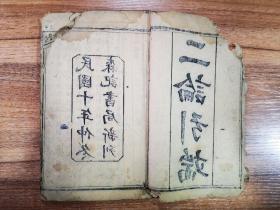 二論引端
森記書局新刊
民國十年仲冬